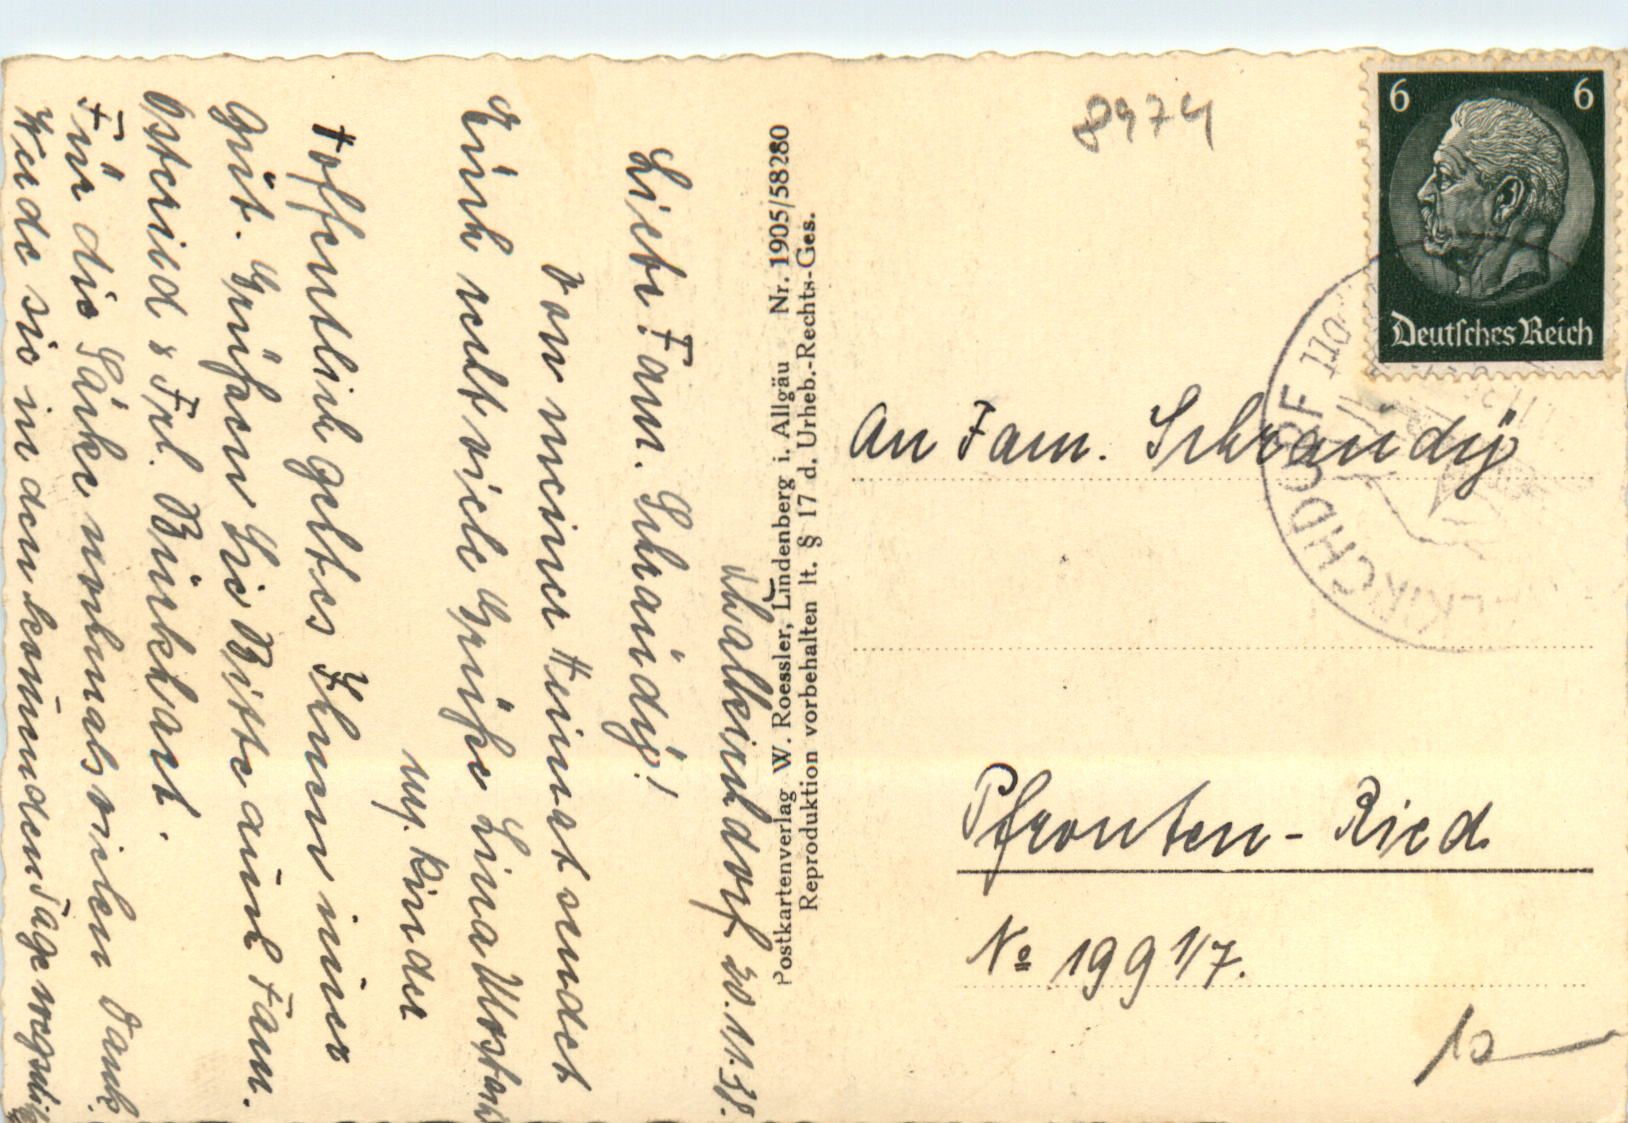 Waltersdorf 20.11.38.
Liebe Fam. Schraudÿ!
Von meiner Heimat sendet
Euch recht viele Grüße Lina
u. Kinder
Hoffentlich geht es Ihnen immer
gut. Grüßen Sie Bitte auch Fam.
Osteried & Frl. Bürkhart.
Für die Säcke nochmals vielen Dank.
Werde sie in den kommenden Tage
Postkartenverlag W. Roessler, Lindenberg i. Allgäu Nr. 1905/58280
Reproduktion vorbehalten lt. § 17 d. Urheb.-Rechts-Ges.
8974
6 6
Deutsches Reich
KIRCHDORF
An Fam. Schraudÿ
Pfronten-Ried
No 199 1/7.